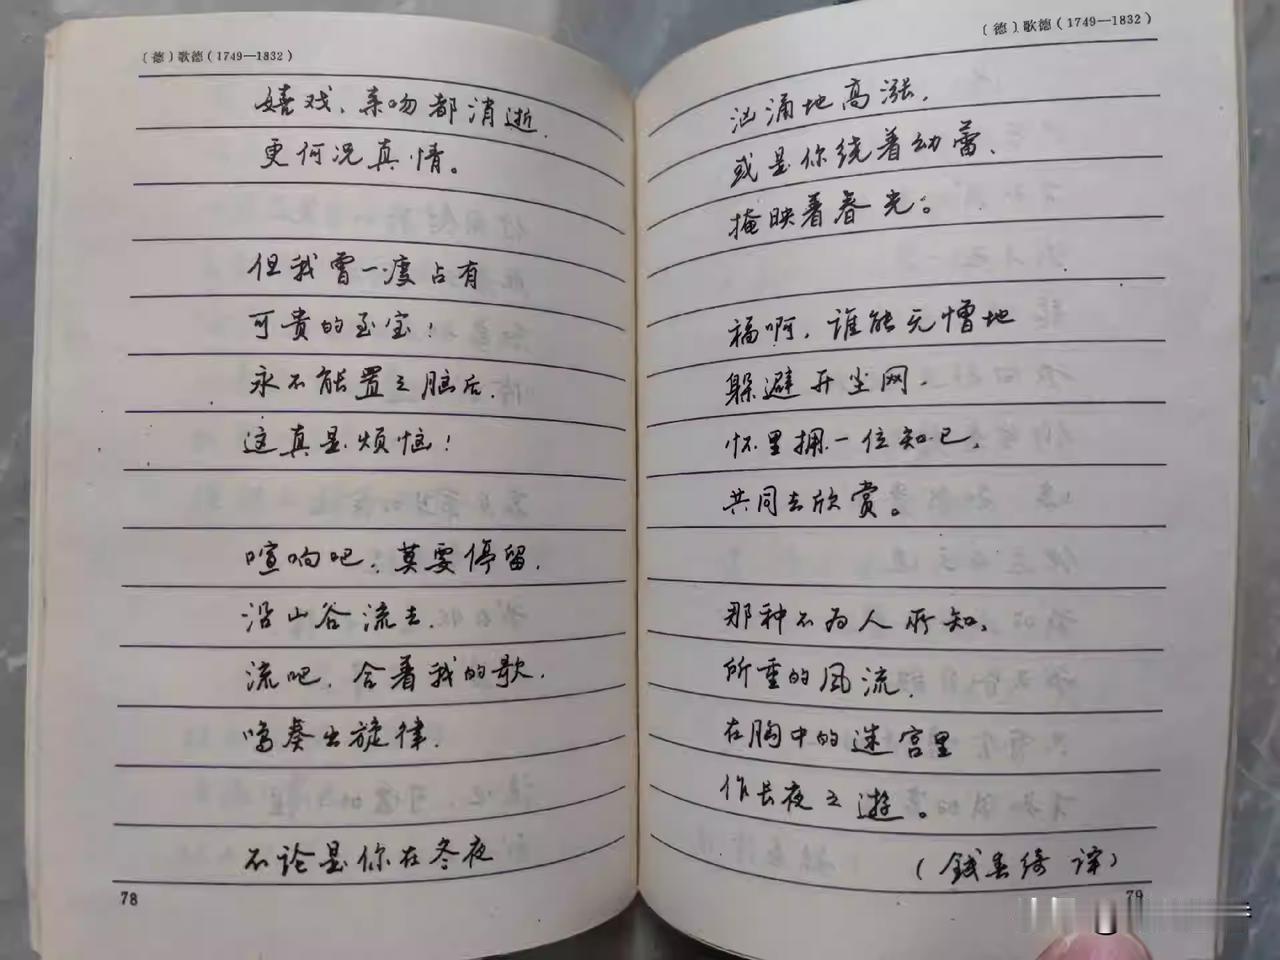 〔德〕歌德(1749—1832)
嬉戏、亲吻都消逝,
更何况真情。
但我曾一度占有
可贵的至宝!
永不能置之脑后,
这真是烦恼!
喧响吧,莫要停留,
沿山谷流去,
流吧,合着我的歌,
鸣奏出旋律,
不论是你在冬夜
78
〔德〕歌德(1749—1832)
汹涌地高涨,
或是你绕着幼蕾、
掩映着春光。
福啊,谁能无憎地
躲避开尘网,
怀里拥一位知己,
共同去欣赏。
那种不为人所知、
所重的风流,
在胸中的迷宫里
作长夜之游。
(钱春绮 译)
79